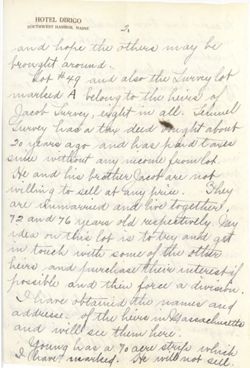 HOTEL DIRIGO
SOUTHWEST HARBOR, MAINE
2.
and hope the others may be
brought around.
Lot #49 and also the Lurvey lot
marked A belong to the heirs of
Jacob Lurvey, eight in all. Lemuel
Lurvey has a tax deed bought about
20 years ago and has paid taxes
since without any income from lot.
He and his brother Jacob are not
willing to sell at any price. They
are unmarried and live together,
72 and 76 years old respectively. My
idea on this lot is to try and get
in touch with some of the other
heirs, and purchase their interest if
possible and then force a division.
I have obtained the names and
addresses of the heirs in Massachusetts
and will see them here.
Young has a 70 acre strip which
I have marked. He will not sell.